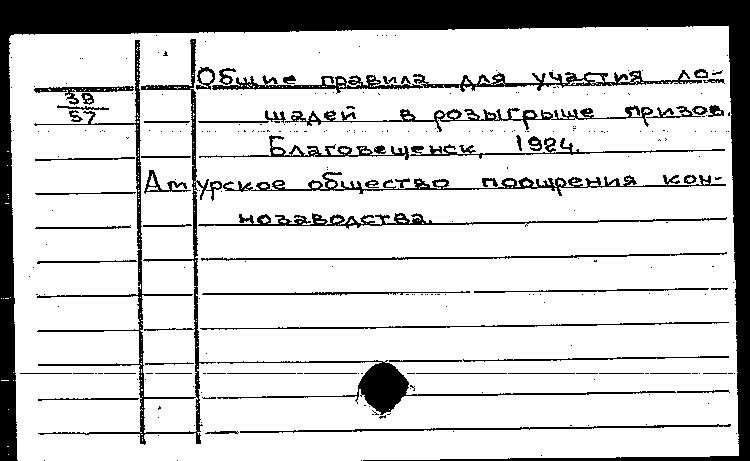 Общие правила для участия ло-
39
57
шадей в розыгрыше призов.
Благовещенск, 1924.
Амурское общество поощрения кон-
нозаводства.